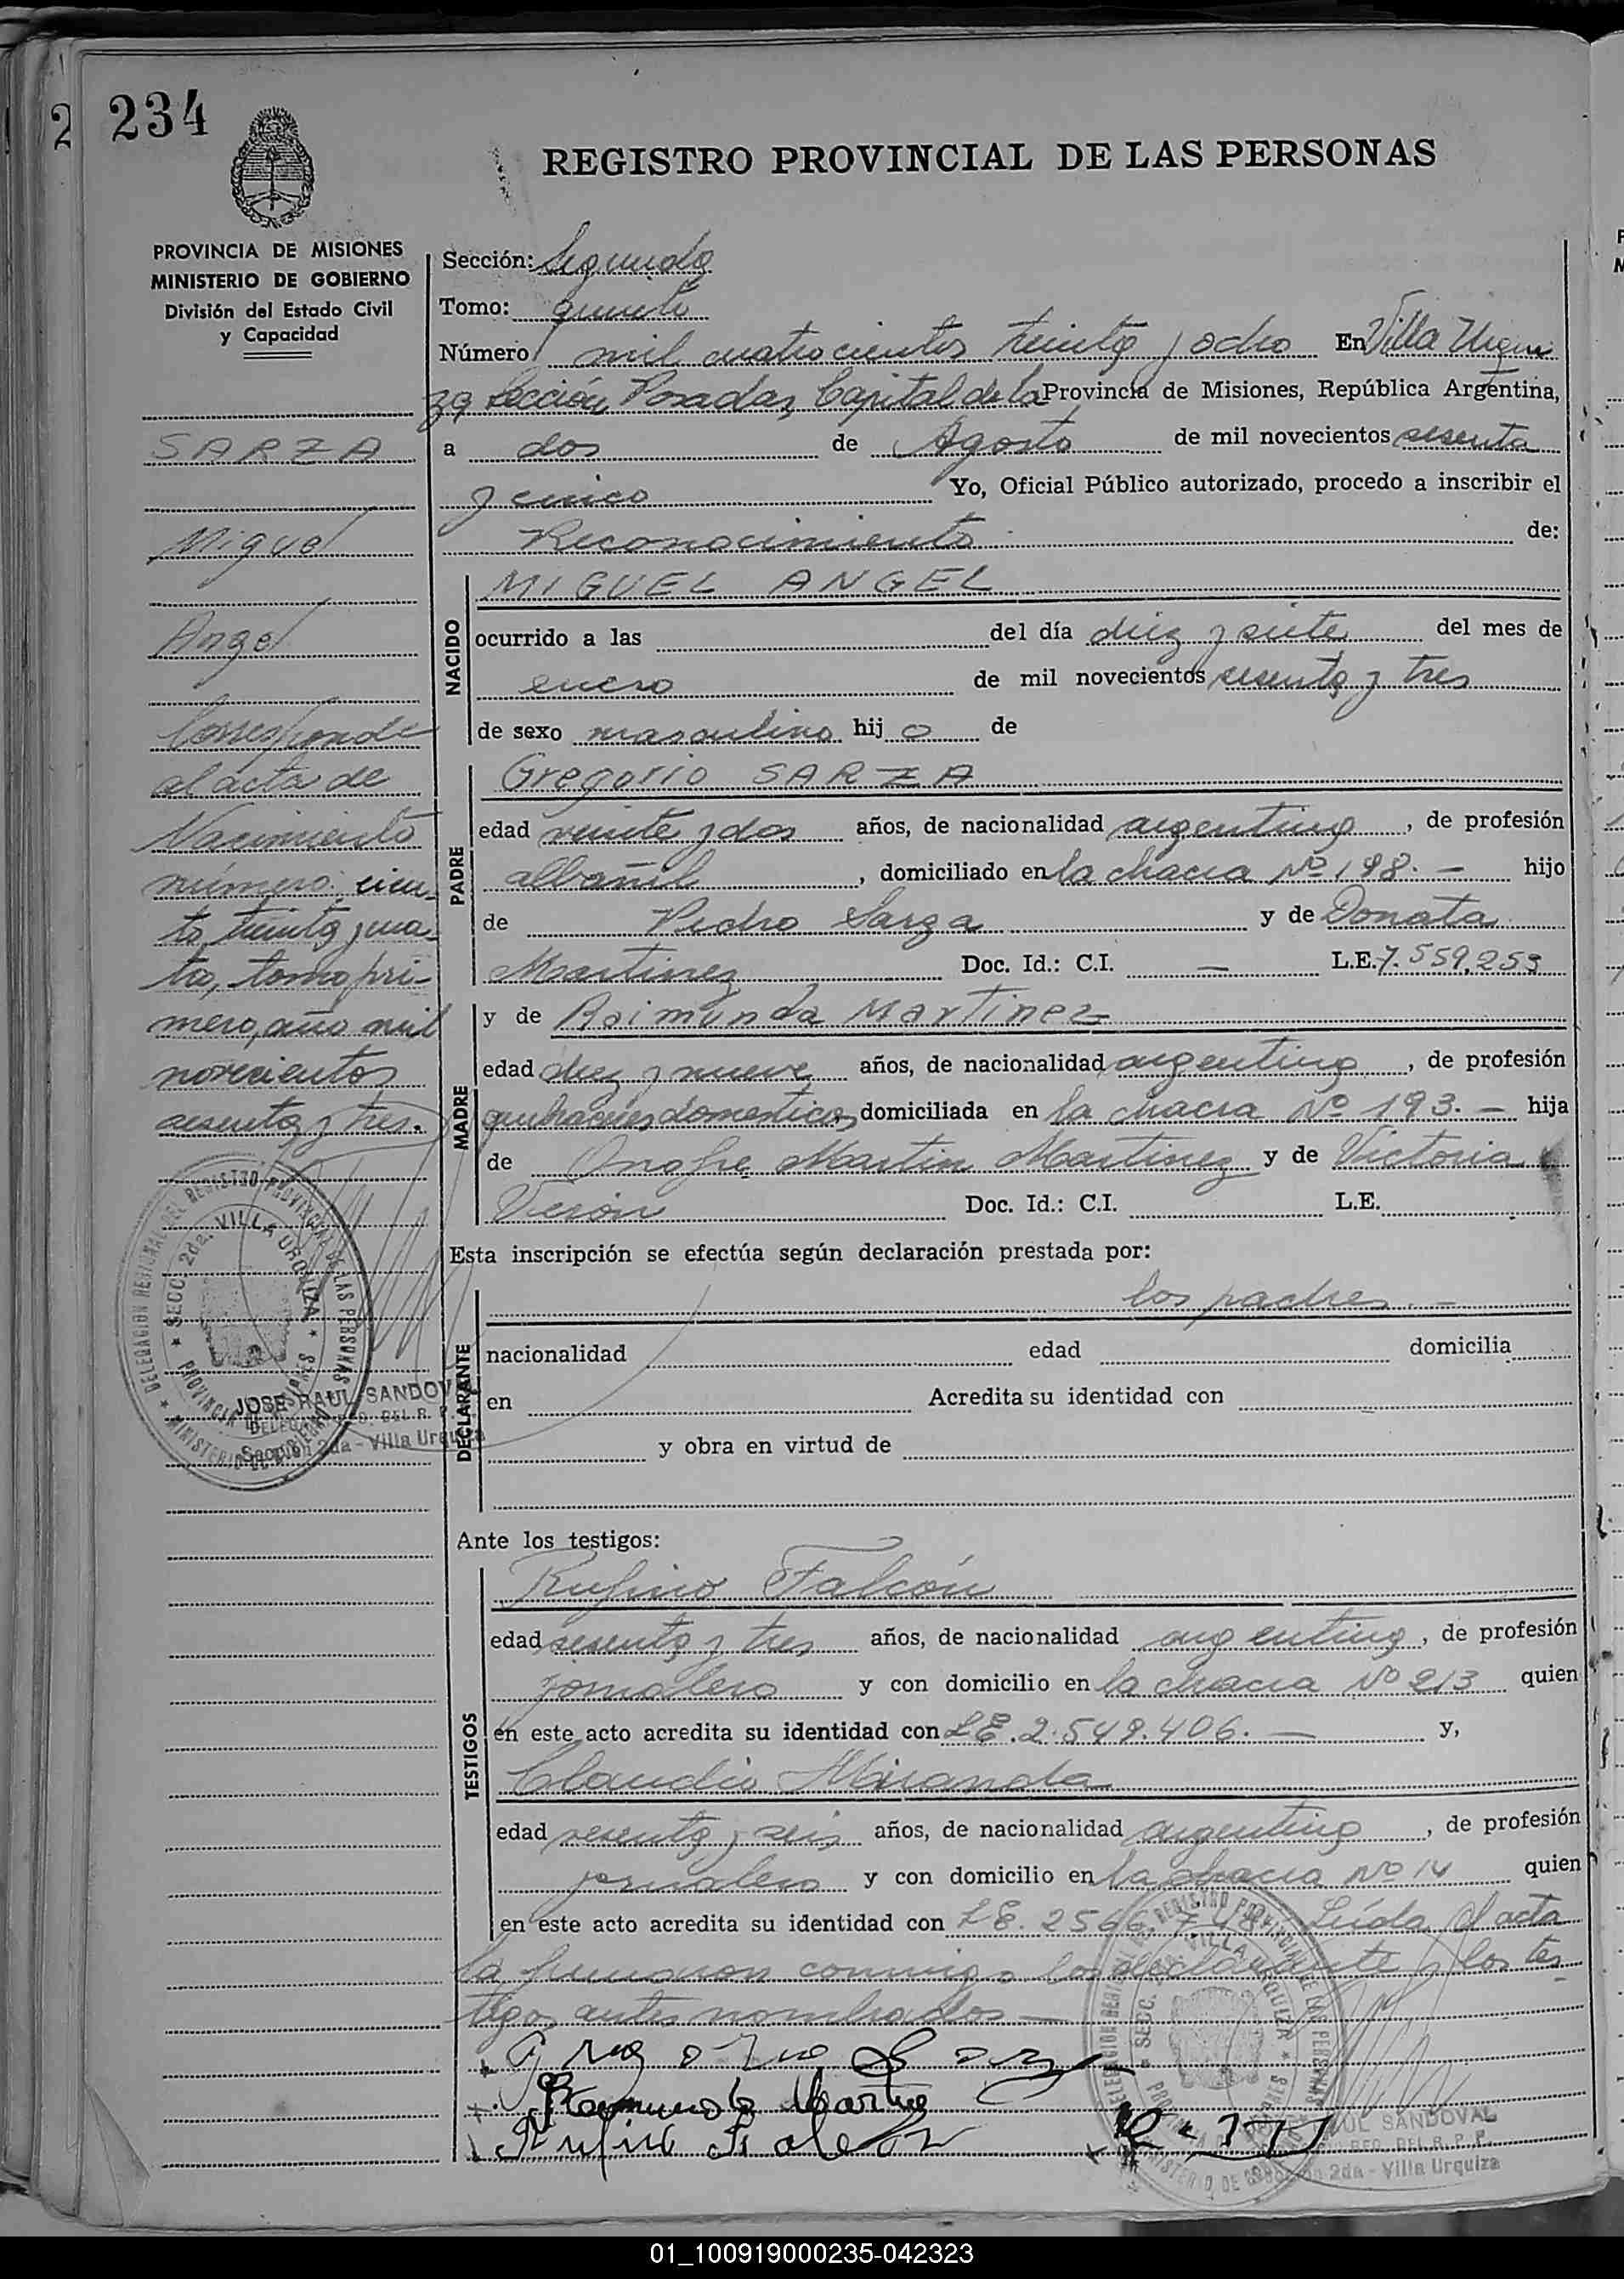 234
REGISTRO PROVINCIAL DE LAS PERSONAS
PROVINCIA DE MISIONES
MINISTERIO DE GOBIERNO
División del Estado Civil
y Capacidad
SARZA
Miguel
Angel
Corresponde
al acta de
Nacimiento
número cien-
to treinta y
to, tomo pri-
mero, año mil
novecientos
sesenta y tres.
Sección: Segunda
Tomo: quinto
Número mil cuatrocientos treinta y ocho En Villa Urqui
za Sección Posadas, Capital de la Provincia de Misiones, República Argentina,
a dos de Agosto de mil novecientos sesenta
y cinco Yo, Oficial Público autorizado, procedo a inscribir el
Reconocimiento de:
NACIDO
MIGUEL ANGEL
ocurrido a las del día diez y siete del mes de
enero de mil novecientos sesenta y tres
de sexo masculino hijo de
PADRE
Gregorio SARZA
edad veinte y dos años, de nacionalidad argentino, de profesión
albañil, domiciliado en la chacra Nº 198. - hijo
de Pedro Sarza y de Donata
Martinez Doc. Id.: C.I. — L.E. 7.559.253
MADRE
y de Raimunda Martinez
edad diez y nueve años, de nacionalidad argentina, de profesión
quehaceres domesticos domiciliada en la chacra Nº 193. - hija
de Onofre Martin Martinez y de Victoria
Verón Doc. Id.: C.I. L.E.
Esta inscripción se efectúa según declaración prestada por:
DECLARANTE
los padres. -
nacionalidad edad domicilia
en Acredita su identidad con
y obra en virtud de
Ante los testigos:
TESTIGOS
Rufino Falcón
edad sesenta y tres años, de nacionalidad argentino, de profesión
jornalero y con domicilio en la chacra Nº 213 quien
en este acto acredita su identidad con L.E. 2.549.406. — y,
Claudio Miranda
edad sesenta y seis años, de nacionalidad argentino, de profesión
jornalero y con domicilio en la chacra Nº 14 quien
en este acto acredita su identidad con L.E. 2566748 Leída el acta
la firmaron conmigo los declarante y los tes
tigos antes nombrados —
Gregorio Sarza
Raimunda Martine
Rufino Falcon
DELEGACION REGIONAL DEL REGISTRO PROVINCIAL DE LAS PERSONAS
SECC. 2da. VILLA URQUIZA
PROVINCIA DE MISIONES
MINISTERIO DE GOBIERNO
JOSE RAUL SANDOVAL
Sección 2da - Villa Urquiza
RAUL SANDOVAL
REG. DEL R. P. P.
2da - Villa Urquiza
01_100919000235-042323